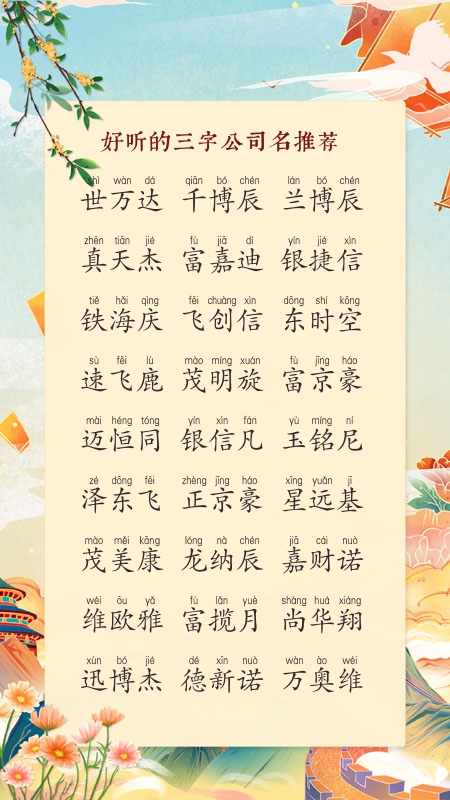 好听的三字公司名推荐
shì wàn dá qiān bó chén lán bó chén
世万达 千博辰 兰博辰
zhēn tiān jié fù jiā dí yín jié xìn
真天杰 富嘉迪 银捷信
tiě hǎi qìng fēi chuàng xìn dōng shí kōng
铁海庆 飞创信 东时空
sù fēi lù mào míng xuán fù jīng háo
速飞鹿 茂明旋 富京豪
mài héng tóng yín xìn fán yù míng ní
迈恒同 银信凡 玉铭尼
zé dōng fēi zhèng jīng háo xīng yuǎn jī
泽东飞 正京豪 星远基
mào měi kāng lóng nà chén jiā cái nuò
茂美康 龙纳辰 嘉财诺
wéi ōu yǎ fù lǎn yuè shàng huá xiáng
维欧雅 富揽月 尚华翔
xùn bó jié dé xīn nuò wàn ào wéi
迅博杰 德新诺 万奥维